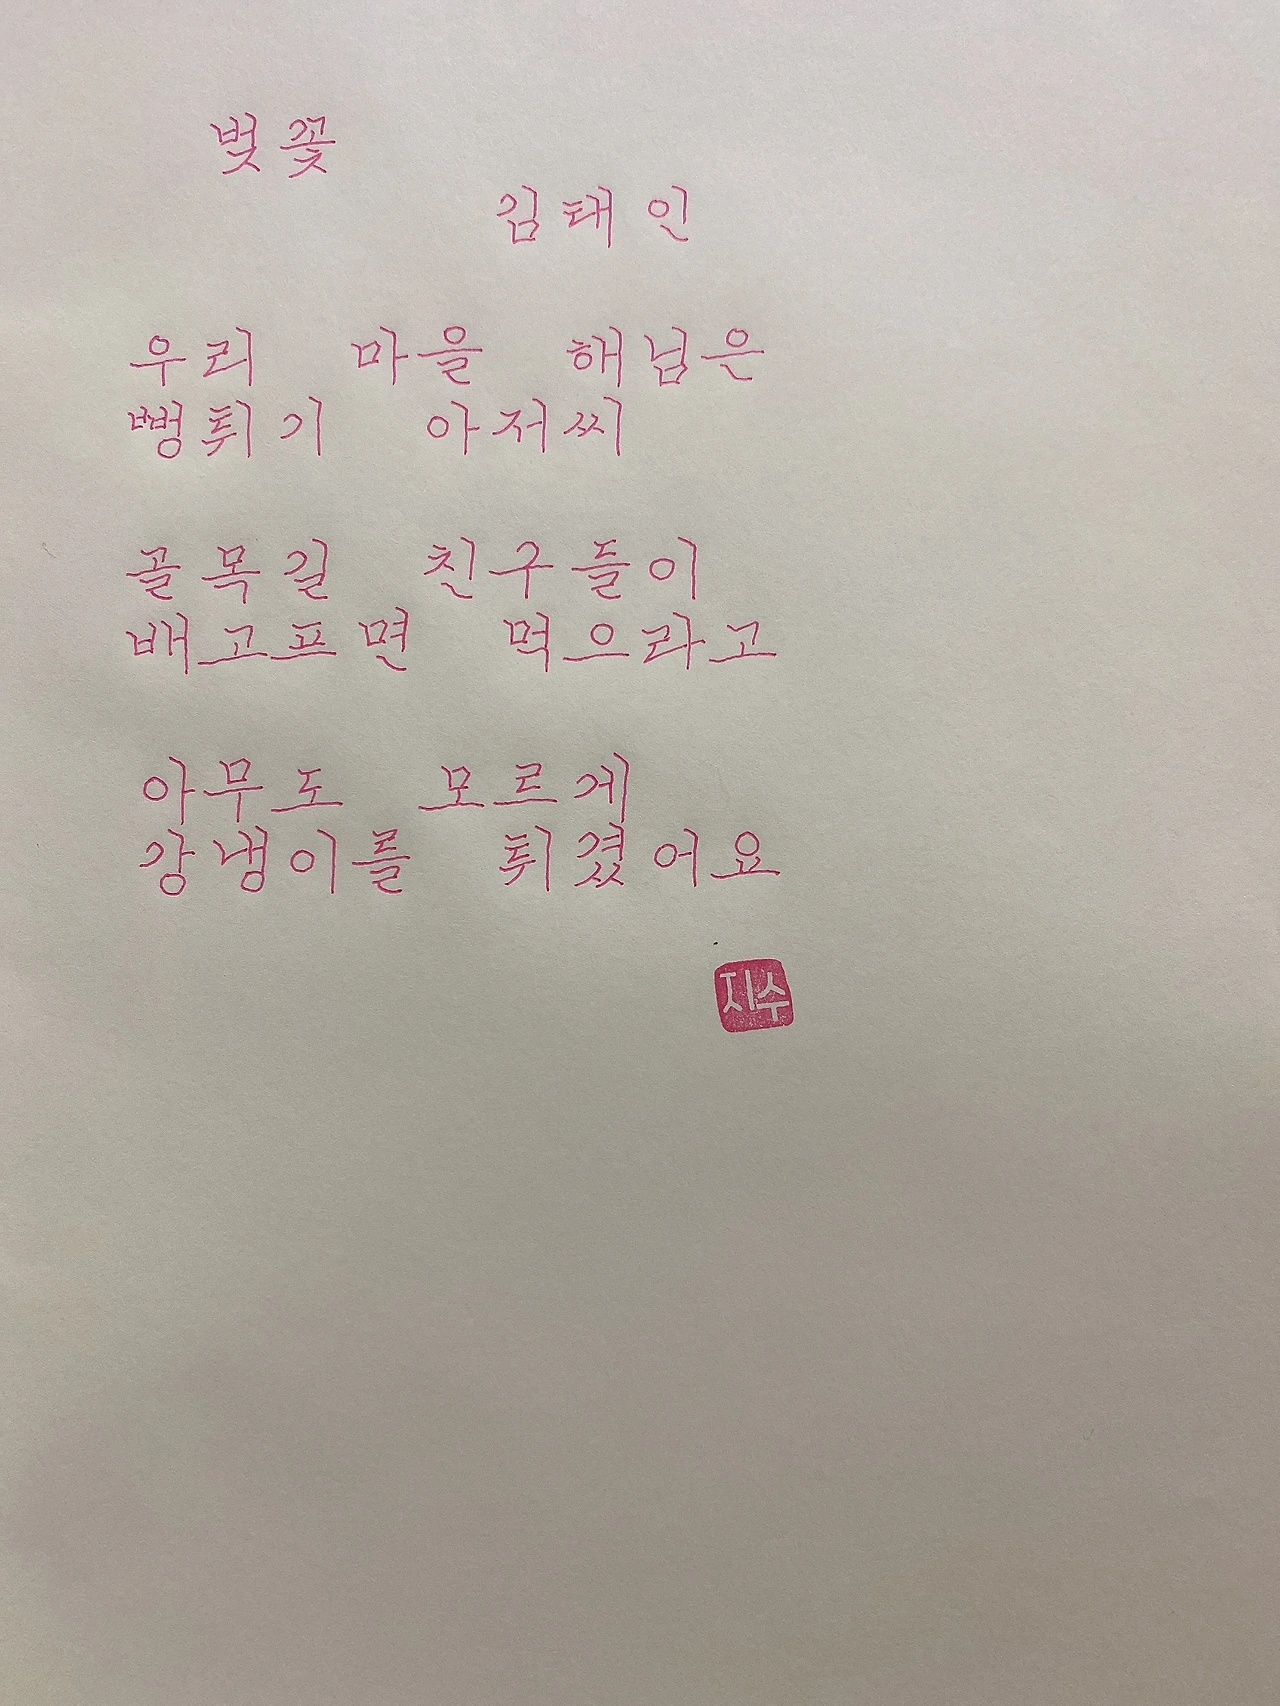 벚꽃
김태인
우리 마을 해님은
뻥튀기 아저씨
골목길 친구들이
배고프면 먹으라고
아무도 모르게
강냉이를 튀겼어요
지수